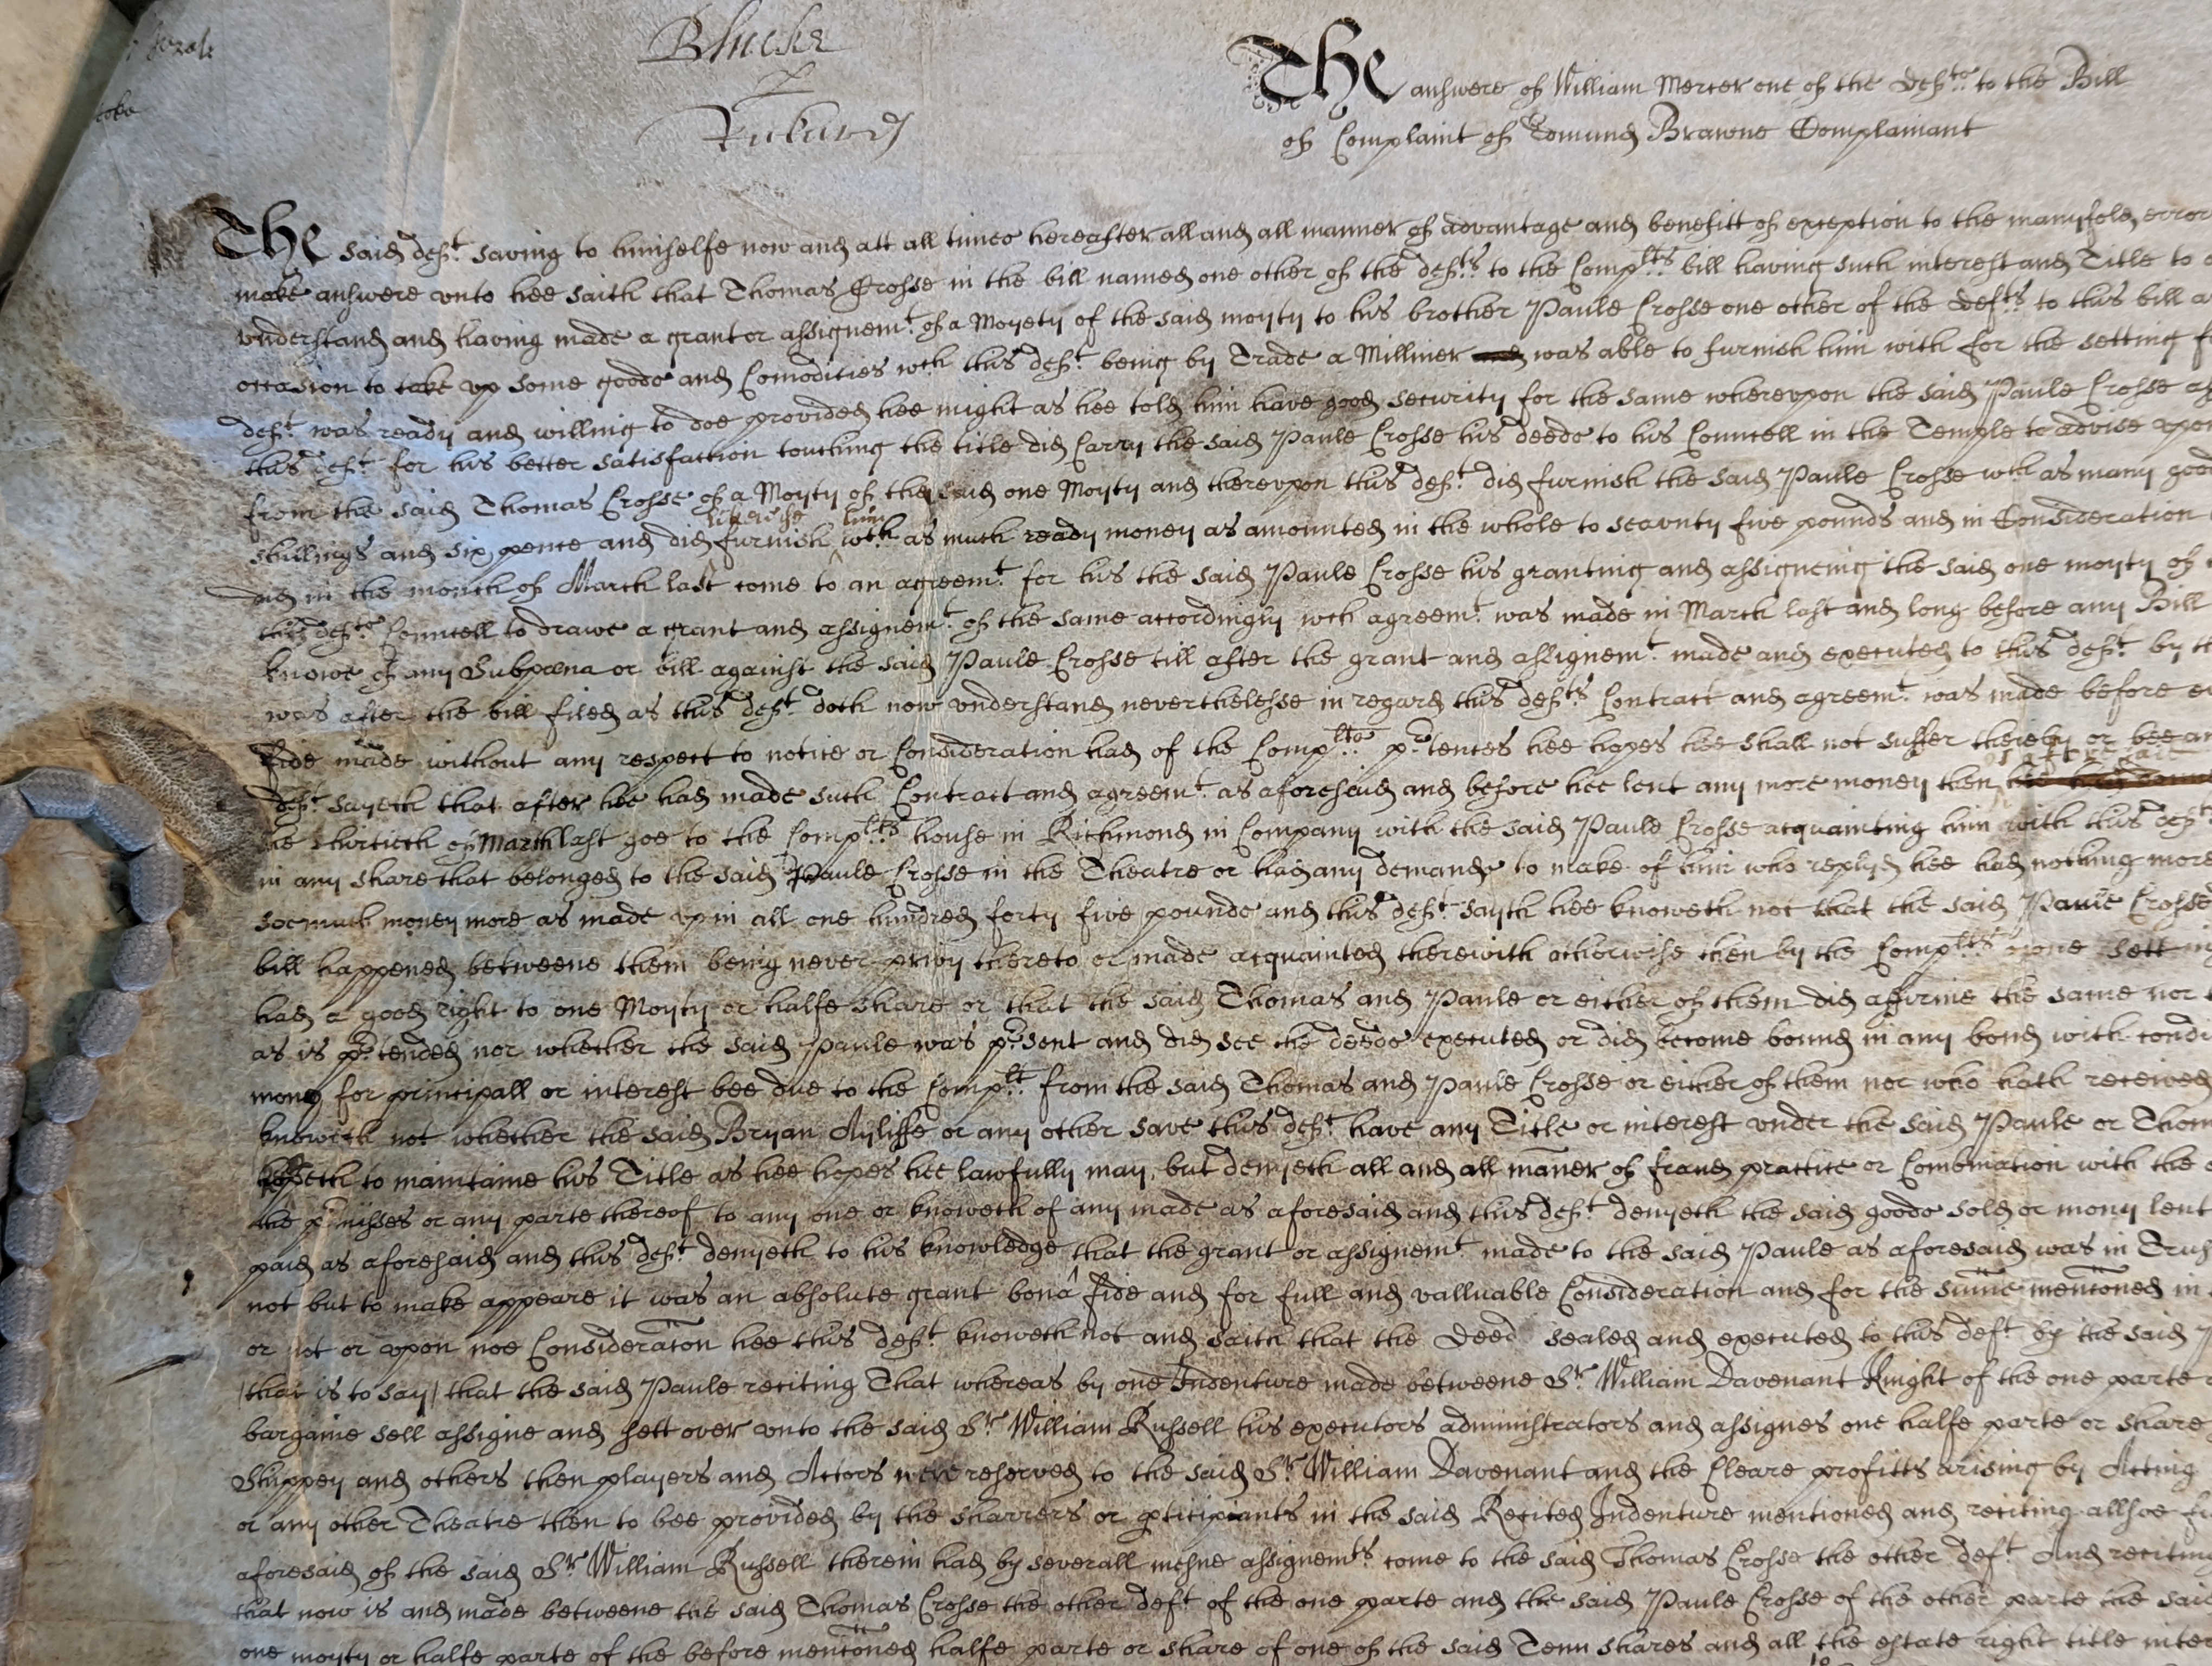 Blucke
Rickards
The answere of William Mercer one of the Defts to the Bill
of Complaint of Edmund Brawne Complainant
The said deft saving to himselfe now and att all times hereafter all and all manner of advantage and benefitt of exception to the manyfold error
make answere vnto hee saith that Thomas Crosse in the bill named one other of the defts to the Complts bill having such interest and Title to
vnderstand and having made a grant or assignemt of a Moyety of the said moyty to his brother Paule Crosse one other of the Defts to this bill
occasion to take vp some goods and Comodities wch this deft being by Trade a Milliner was able to furnish him with for the setting
deft was ready and willing to doe provided hee might as hee told him have good security for the same wherevpon the said Paule Crosse
this deft for his better satisfaction touching the title did Carry the said Paule Crosse his deeds to his Councell in the Temple to advise vpon
from the said Thomas Crosse of a Moyty of the said one Moyty and therevpon this deft did furnish the said Paule Crosse wth as many good
shillings and six pence and did likewise furnish him wth as much ready money as amounted in the whole to seaventy five pounds and in Consideration
did in the month of March last come to an agreemt for his the said Paule Crosse his granting and assigneing the said one moyty of
this defts Councell to drawe a grant and assignemt of the same accordingly wch agreemt was made in March last and long before any Bill
knowe of any Subpœna or bill against the said Paule Crosse till after the grant and assignemt made and executed to this deft by
was after the bill filed as this deft doth now vnderstand neverthelesse in regard this defts Contract and agreemt was made before
fide made without any respect to notice or Consideration had of the Complts prtences hee hopes hee shall not suffer thereby or bee
deft sayeth that after hee had made such Contract and agreemt as aforesaid and before hee lent any more money then
the thirtieth of March last goe to the Complts house in Richmond in Company with the said Paule Crosse acquainting him with this defts
in any share that belonged to the said Paule Crosse in the Theatre or had any demands to make of him who replyed hee had nothing more
soe much money more as made vp in all one hundred forty five pounds and this deft sayth hee knoweth not that the said Paule Crosse
bill happened betweene them being never privy thereto or made acquainted therewith otherwise then by the Complts owne sett
had a good right to one Moyty or halfe share or that the said Thomas and Paule or either of them did affirme the same nor
as is prtended nor whether the said Paule was prsent and did see the deeds executed or did become bound in any bond with
mony for principall or interest bee due to the Complt from the said Thomas and Paule Crosse or either of them nor who hath received
knoweth not whether the said Bryan Ayliffe or any other save this deft have any Title or interest vnder the said Paule or Thom
hopeth to maintaine his Title as hee hopes hee lawfully may, but denyeth all and all maner of fraud practice or Combination with the
the prmisses or any parte thereof to any one or knoweth of any made as aforesaid and this deft denyeth the said goods sold or mony lent
paid as aforesaid and this deft denyeth to his knowledge that the grant or assignemt made to the said Paule as aforesaid was in Trus
not but to make appeare it was an absolute grant bonâ fide and for full and valluable Consideration and for the sume mentoned in
or not or vpon noe Consideraton hee this deft knoweth not and saith that the Deed sealed and executed to this deft by the said
(that is to say) that the said Paule reciting That whereas by one Indenture made betweene Sr William Davenant Knight of the one parte
bargaine sell assigne and sett over vnto the said Sr William Russell his executors administrators and assignes one halfe parte or share
Shippey and others then players and Actors were reserved to the said Sr William Davenant and the Cleare profitts arising by Acting
or any other Theatre then to bee provided by the sharrers or pticipiants in the said Recited Indenture mentioned and reciting allsoe
aforesaid of the said Sr William Russell therein had by severall mesne assignemts come to the said Thomas Crosse the other deft And reciting
that now is and made betweene the said Thomas Crosse the other deft of the one parte and the said Paule Crosse of the other parte the said
one moyty or halfe parte of the before mentoned halfe parte or share of one of the said Tenn shares and all the estate right title inter